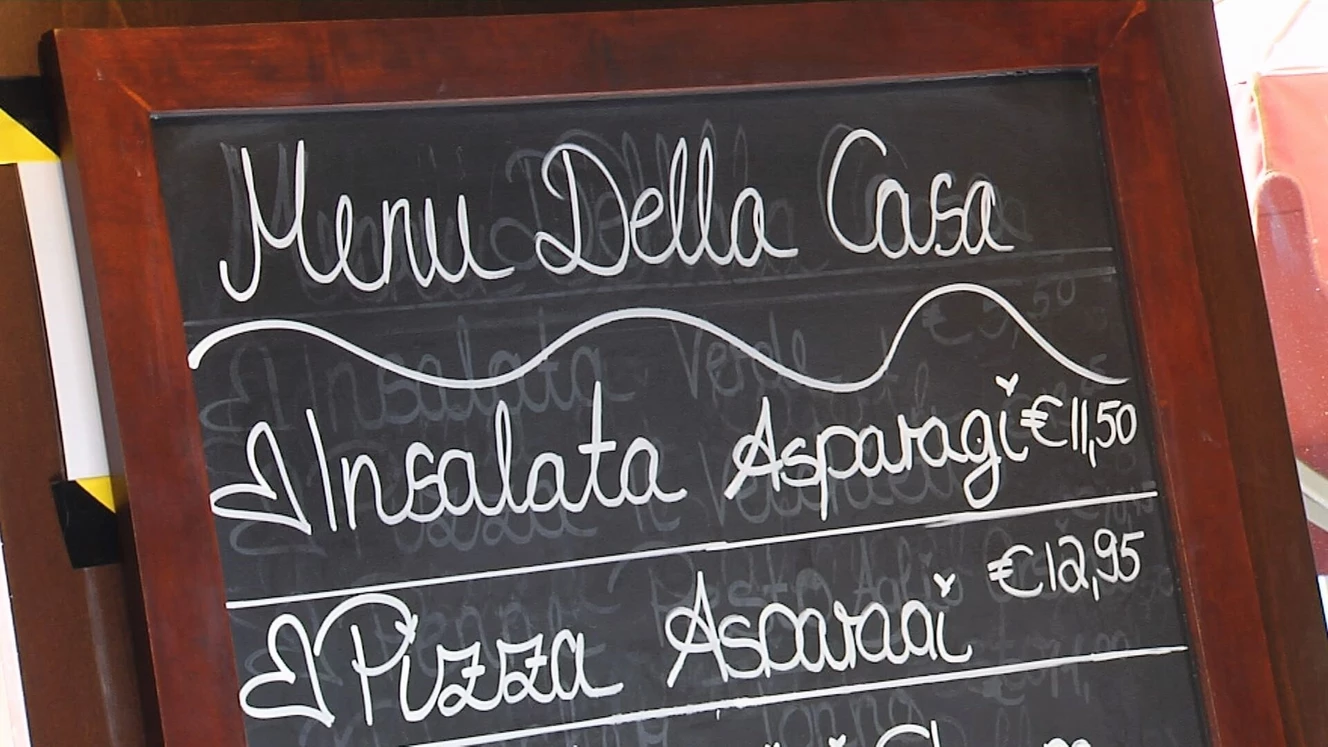 Menu Della Casa
Insalata Asparagi €11,50
Pizza Asparagi €12,95